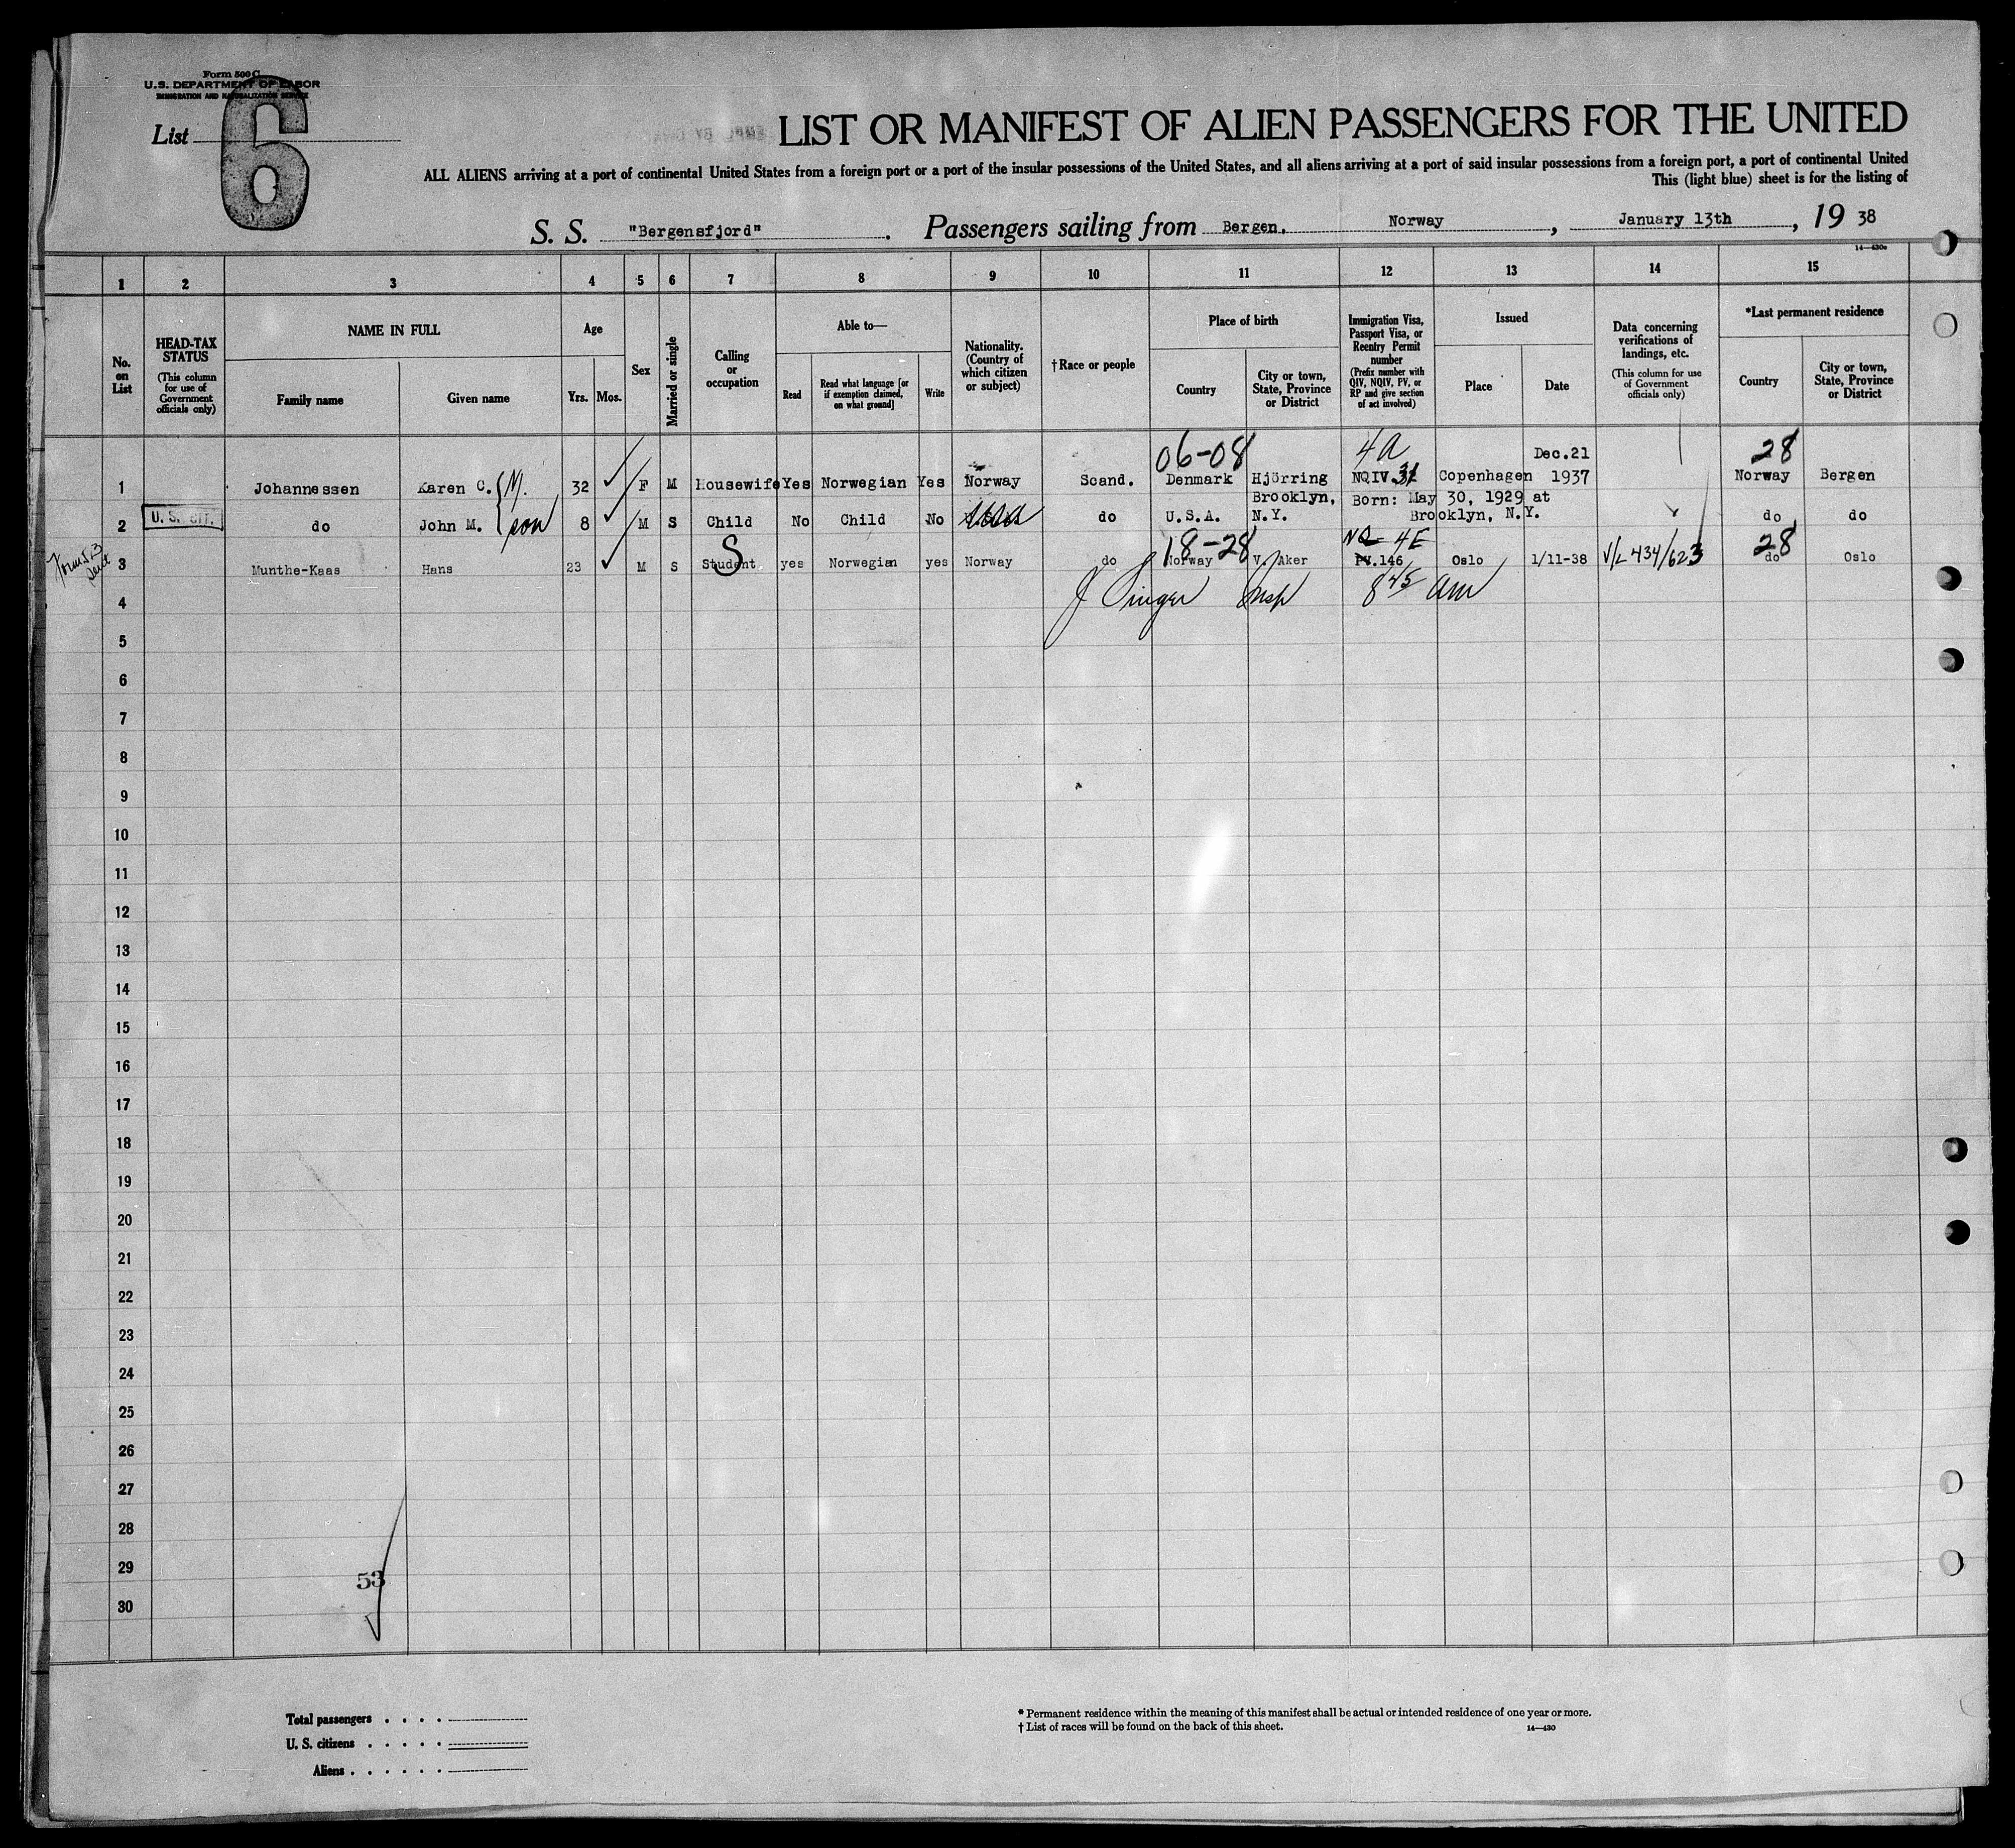 Form 500 C
U.S. DEPARTMENT OF LABOR
IMMIGRATION AND NATURALIZATION SERVICE
List 6
LIST OR MANIFEST OF ALIEN PASSENGERS FOR THE UNITED
ALL ALIENS arriving at a port of continental United States from a foreign port or a port of the insular possessions of the United States, and all aliens arriving at a port of said insular possessions from a foreign port, a port of continental United
This (light blue) sheet is for the listing of
S. S. "Bergensfjord" . Passengers sailing from Bergen, Norway , January 13th , 19 38
14—430e
1 2 3 4 5 6 7 8 9 10 11 12 13 14 15
No. on List
HEAD-TAX STATUS
(This column for use of Government officials only)
NAME IN FULL
Family name
Given name
Age
Yrs. Mos.
Sex
Married or single
Calling or occupation
Able to—
Read
Read what language [or if exemption claimed, on what ground]
Write
Nationality. (Country of which citizen or subject)
†Race or people
Place of birth
Country
City or town, State, Province or District
Immigration Visa, Passport Visa, or Reentry Permit number
(Prefix number with QIV, NQIV, PV, or RP and give section of act involved)
Issued
Place
Date
Data concerning verifications of landings, etc.
(This column for use of Government officials only)
*Last permanent residence
Country
City or town, State, Province or District
06-08 4A Dec.21 28
1 Johannessen Karen C. M. 32 F M Housewife Yes Norwegian Yes Norway Scand. Denmark Hjörring NQIV.31 Copenhagen 1937 Norway Bergen
Brooklyn, Born: May 30, 1929 at
2 U. S. CIT. do John M. son 8 M S Child No Child No USA do U.S.A. N.Y. Brooklyn, N.Y. do do
18-28 NQ 4E 28
3 Munthe-Kaas Hans 23 M S Student S yes Norwegian yes Norway do Norway V. Aker PV.146 Oslo 1/11-38 V/L 434/623 do Oslo
4 J Singer Insp 8 45 am
5
6
7
8
9
10
11
12
13
14
15
16
17
18
19
20
21
22
23
24
25
26
27
28
29
53
30
Total passengers . . . .
U. S. citizens . . . . .
Aliens . . . . . .
* Permanent residence within the meaning of this manifest shall be actual or intended residence of one year or more.
† List of races will be found on the back of this sheet.
14—430